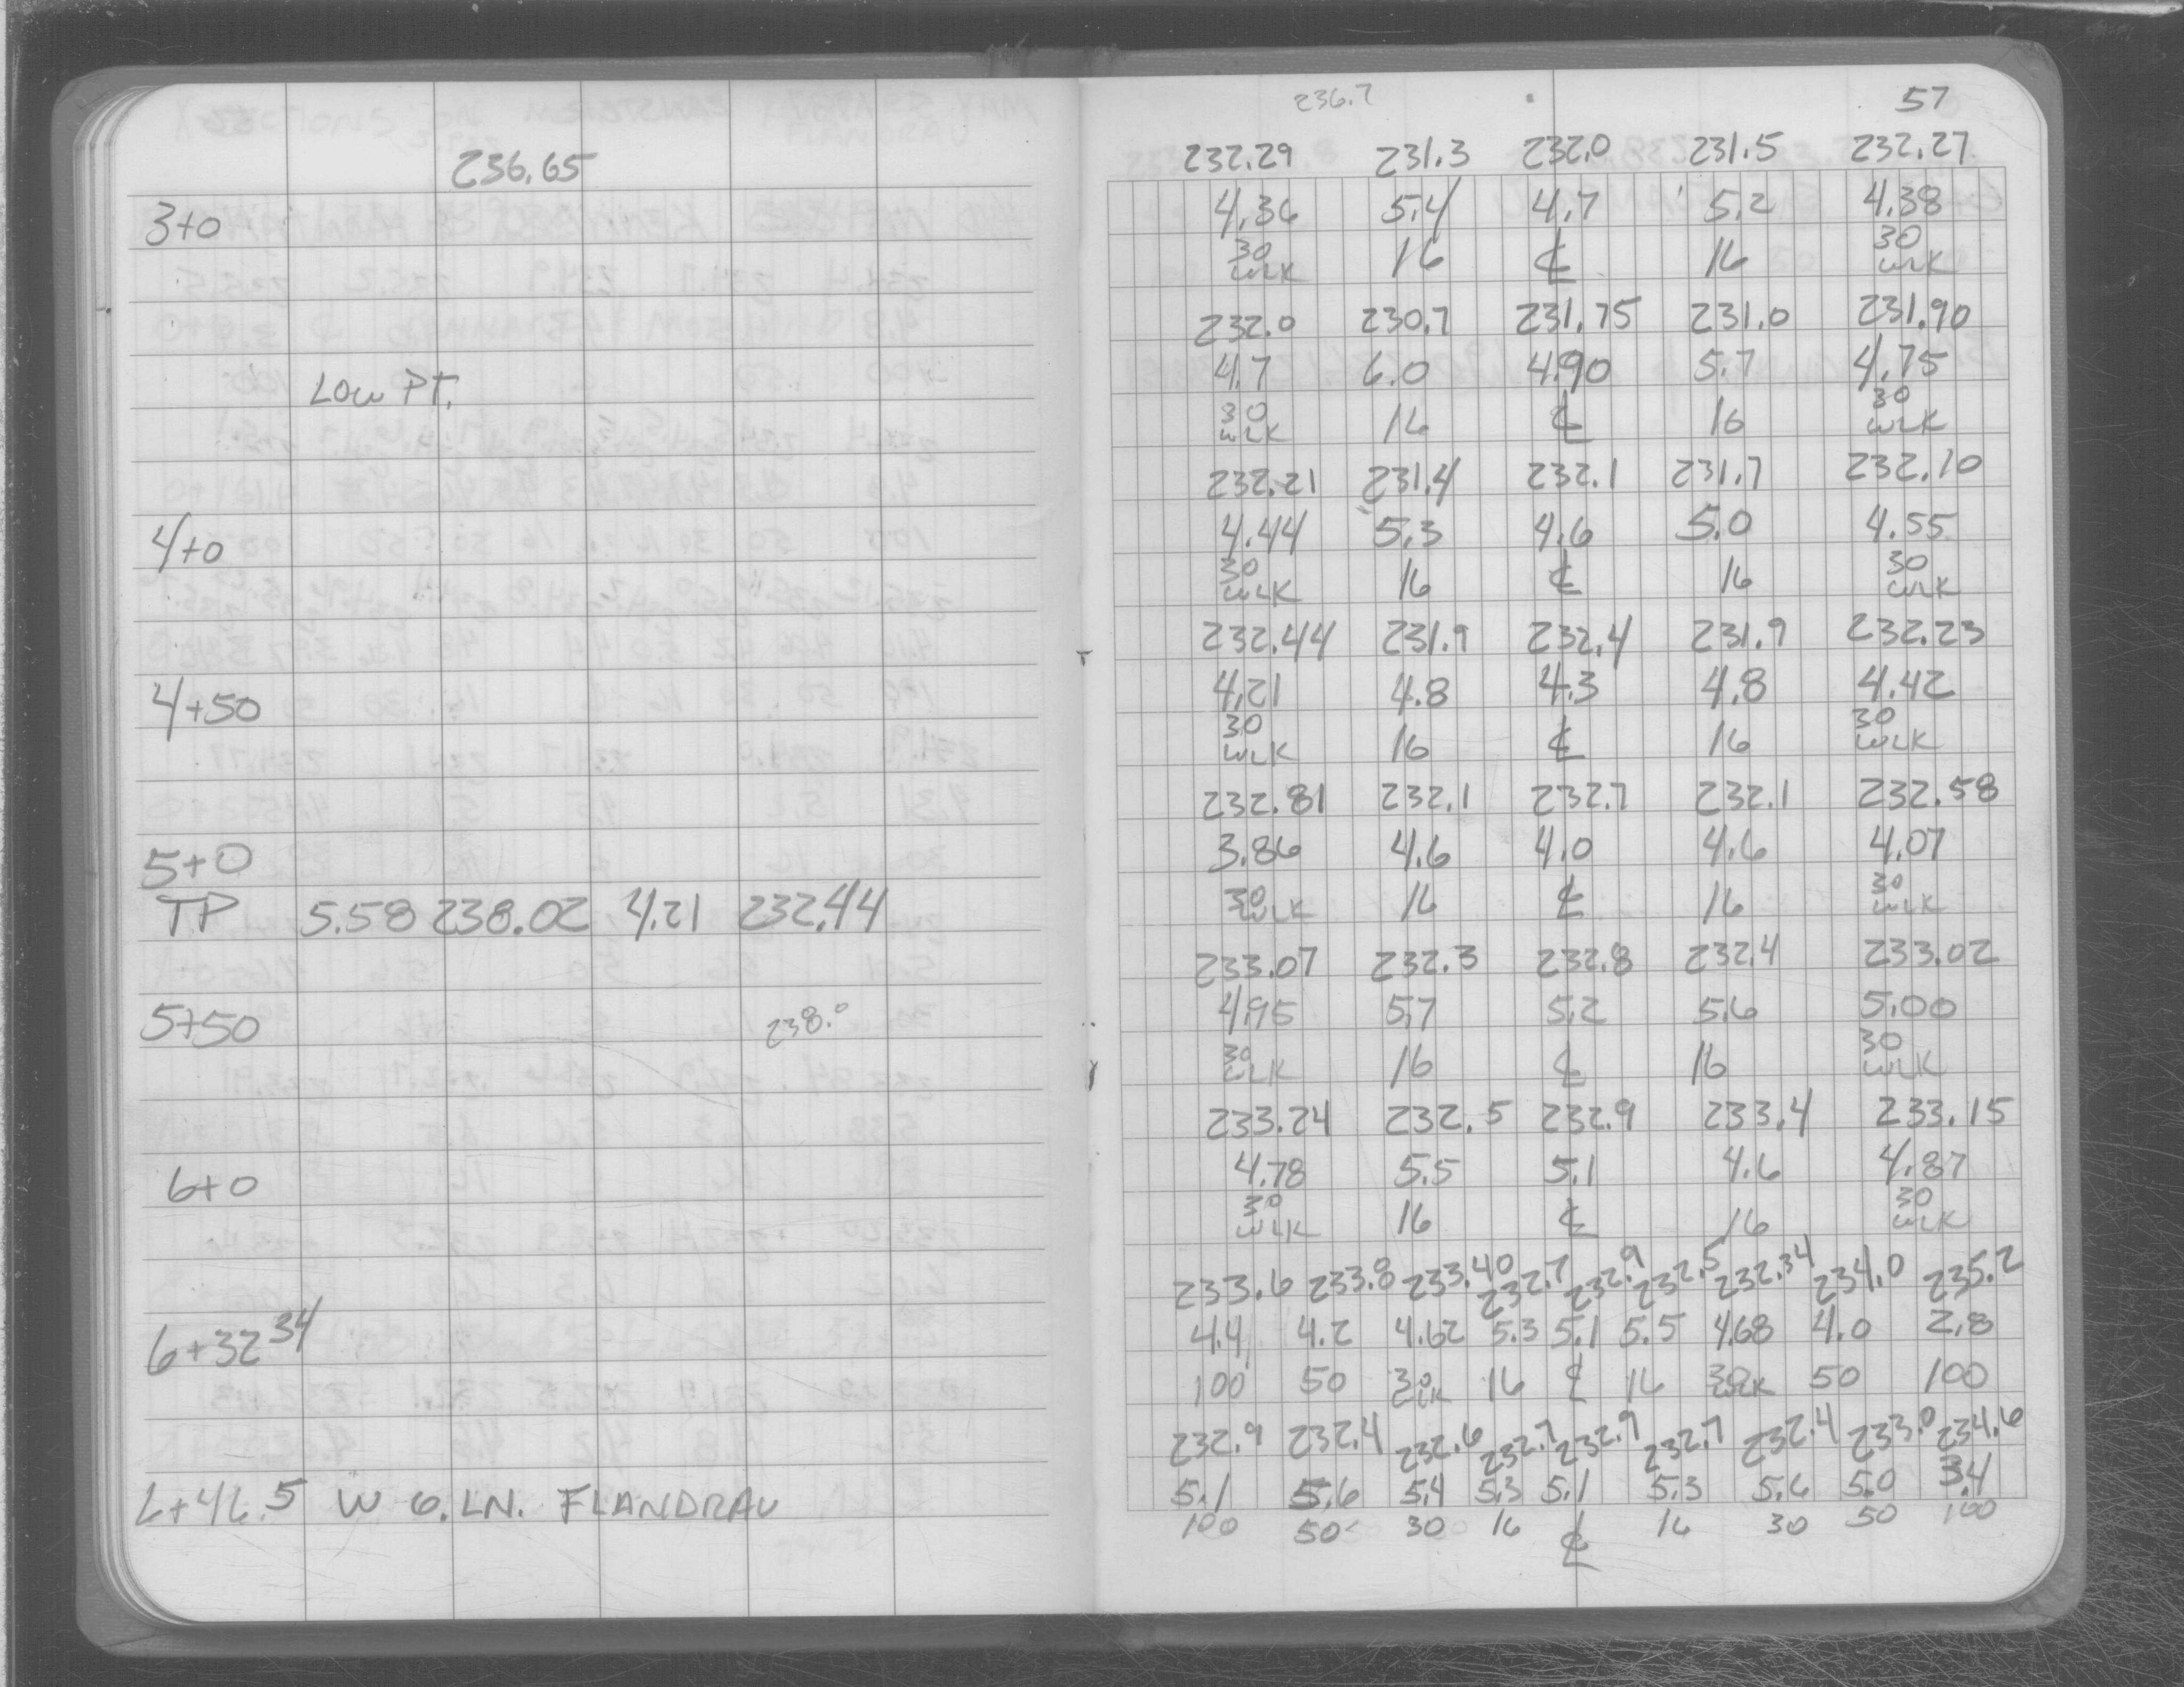 236.65
3+0
Low PT.
4+0
4+50
5+0
TP 5.58 238.02 4.21 232.44
5+50 238.0
6+0
6+32 34
6+46.5 W O. LN. FLANDRAU
236.7 57
232.29 231.3 232.0 231.5 232.27
4.36 5.4 4.7 5.2 4.38
30 16 ℄ 16 30
WLK WLK
232.0 230.7 231.75 231.0 231.90
4.7 6.0 4.90 5.7 4.75
30 16 ℄ 16 30
WLK WLK
232.21 231.4 232.1 231.7 232.10
4.44 5.3 4.6 5.0 4.55
30 16 ℄ 16 30
WLK WLK
232.44 231.9 232.4 231.9 232.23
4.21 4.8 4.3 4.8 4.42
30 16 ℄ 16 30
WLK WLK
232.81 232.1 232.7 232.1 232.58
3.86 4.6 4.0 4.6 4.07
30 16 ℄ 16 30
WLK WLK
233.07 232.3 232.8 232.4 233.02
4.95 5.7 5.2 5.6 5.00
30 16 ℄ 16 30
WLK WLK
233.24 232.5 232.9 233.4 233.15
4.78 5.5 5.1 4.6 4.87
30 16 ℄ 16 30
WLK WLK
233.6 233.8 233.40 232.7 232.9 232.5 232.34 234.0 235.2
4.4 4.2 4.62 5.3 5.1 5.5 4.68 4.0 2.8
100 50 30 16 ℄ 16 30 50 100
WLK WLK
232.9 232.4 232.6 232.7 232.9 232.7 232.4 233.0 234.6
5.1 5.6 5.4 5.3 5.1 5.3 5.6 5.0 3.4
100 50 30 16 ℄ 16 30 50 100